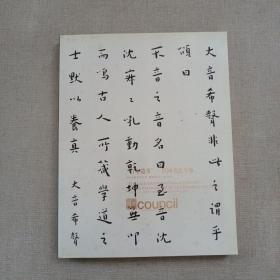 大音希聲非此之謂乎
頌曰
之音名曰至音沈
沈動乾坤無叩
而鳴古人所箴學道之
士默以養真 大音希聲
council